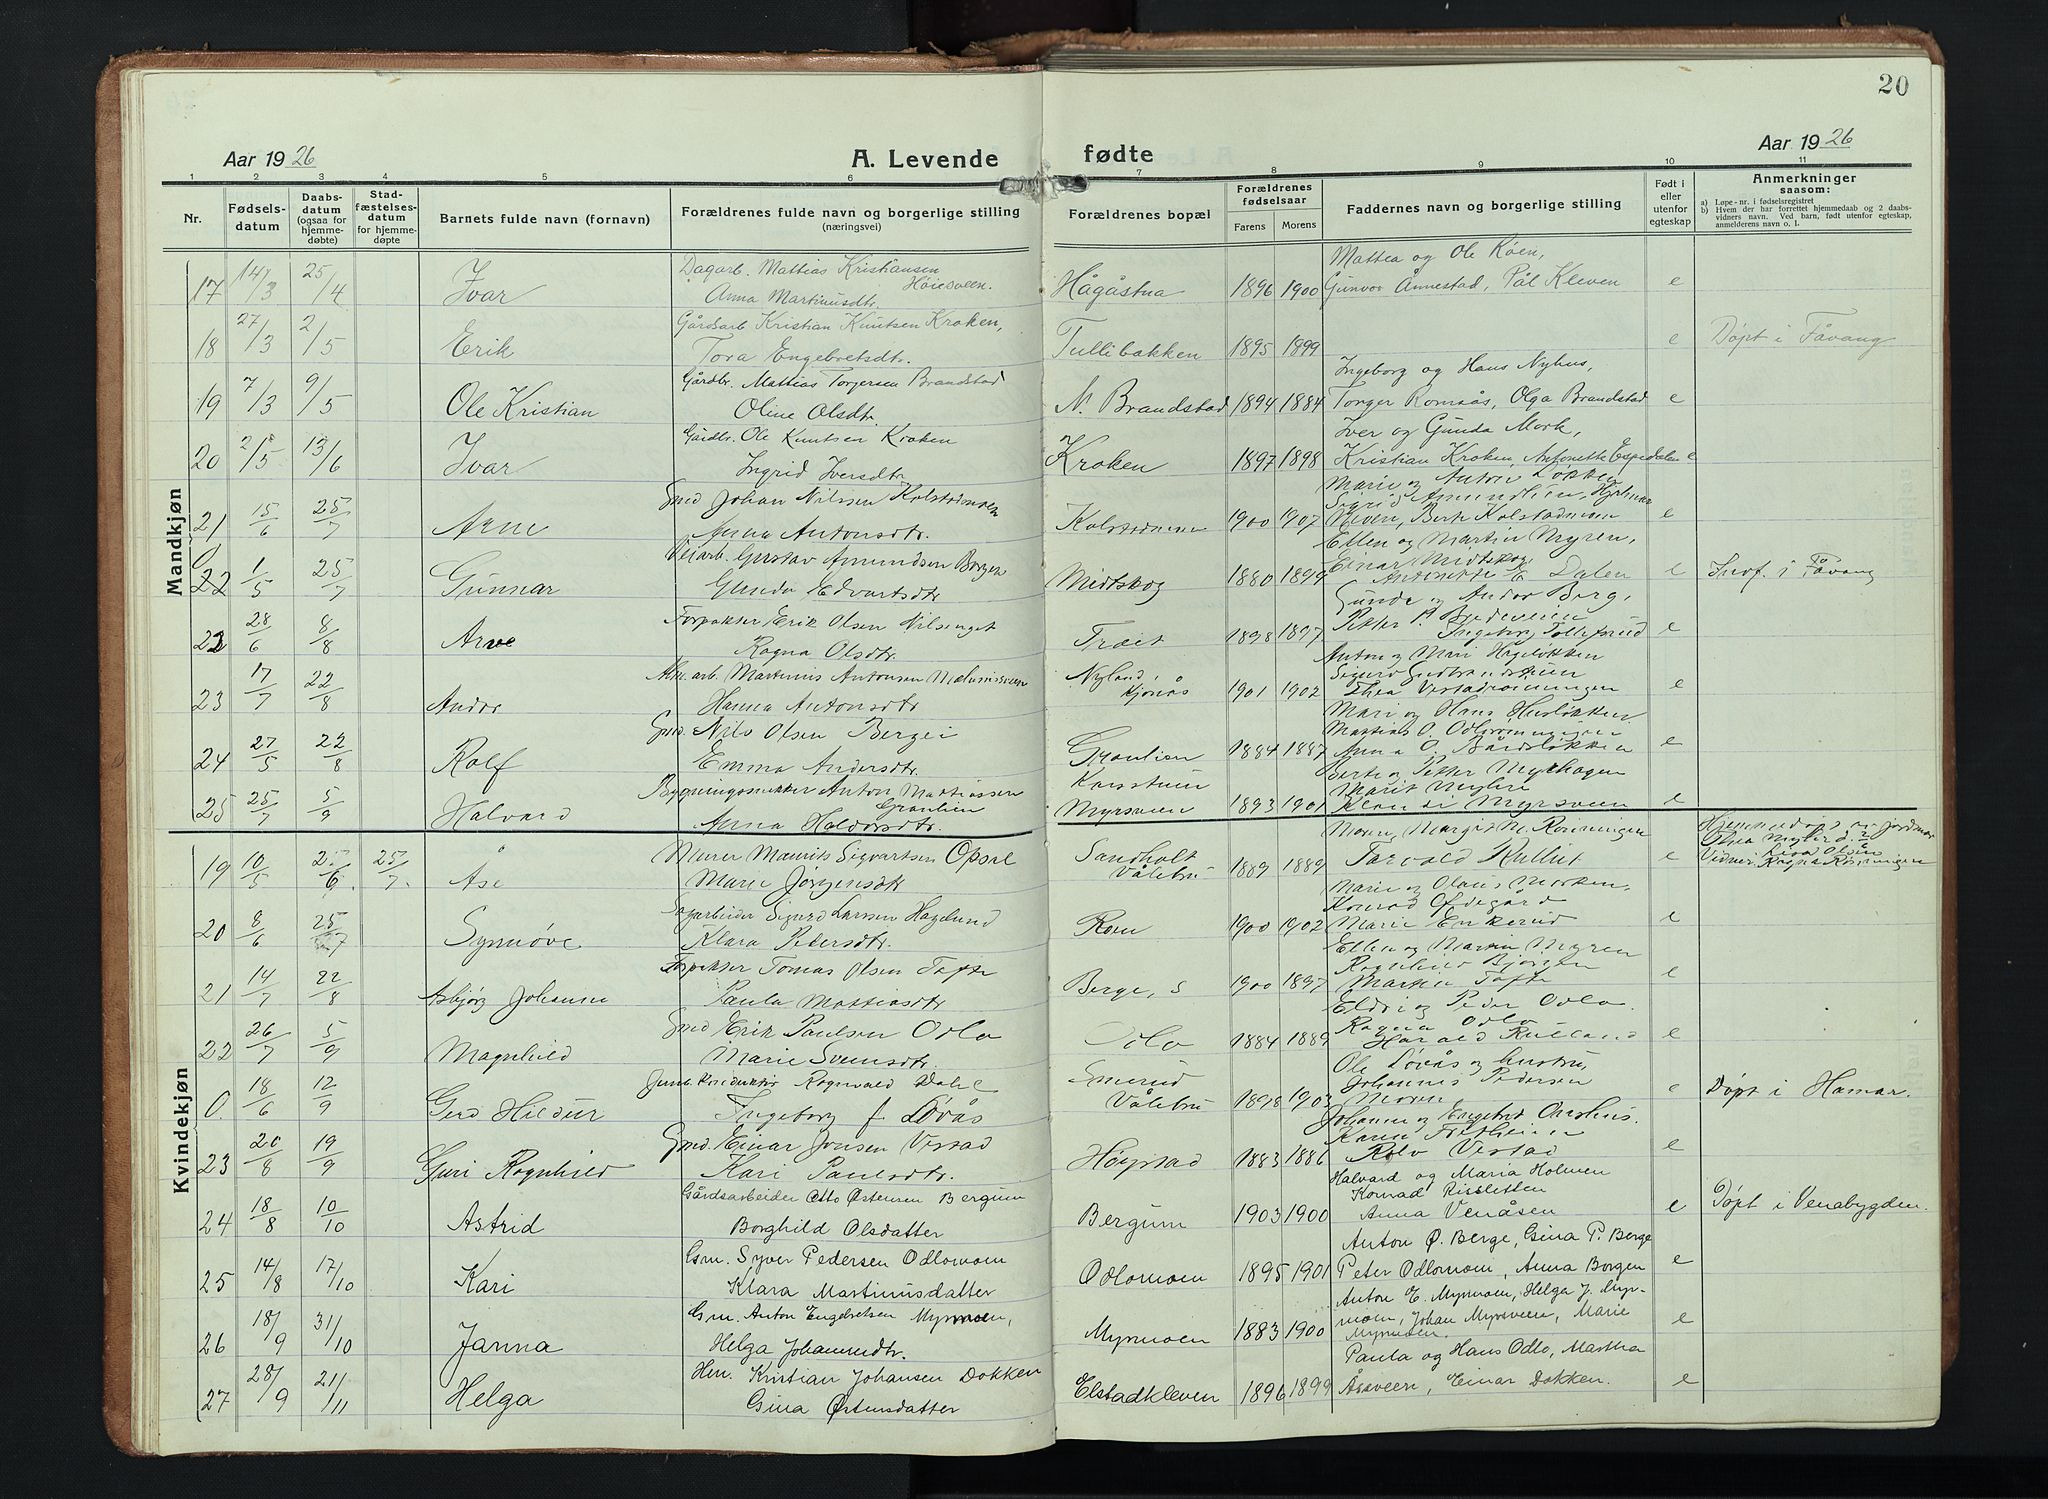 20
Aar 1926
A. Levende fødte
Aar 1926
1 2 3 4 5 6 7 8 9 10 11
Nr.
Fødsels-datum
Daabs-datum (ogsaa for hjemme-døbte)
Stad-fæstelses-datum for hjemme-døpte
Barnets fulde navn (fornavn)
Forældrenes fulde navn og borgerlige stilling (næringsvei)
Forældrenes bopæl
Forældrenes fødselsaar
Farens Morens
Faddernes navn og borgerlige stilling
Født i eller utenfor egteskap
Anmerkninger saasom:
a) Løpe-nr. i fødselsregistret
b) Hvem der har forrettet hjemmedaab og 2 daabs-vidners navn. Ved barn, født utenfor egteskap, anmelderens navn o. l.
Mandkjøn
Dagarb. Mattias Kristiansen Høiesveen. Mattea og Ole Røen,
17 14/3 25/4 Ivar Anna Martinusdtr. Hågåstua 1896 1900 Gunvor Annestad, Pål Kleven e
Gårdsarb Kristian Knutsen Kroken,
18 27/3 2/5 Erik Tora Engebretsdtr. Tullibakken 1895 1899 e Døpt i Fåvang
Gårdbr. Mattias Torgersen Brandstad Ingeborg og Hans Nyhus,
19 7/3 9/5 Ole Kristian Oline Olsdtr. N. Brandstad 1894 1884 Torger Romsås, Olga Brandstad e
Gårdbr. Ole Knutsen Kroken Iver og Gunda Mork,
20 2/5 13/6 Ivar Ingrid Iversdtr. Kroken 1897 1898 Kristian Kroken, Antonette Espedalen e
Gmd Johan Nilssen Kolstadmoen Marie og Anton Løkken
21 15/6 25/7 Arne Anna Antonsdtr. Kolstadmoen 1900 1907 Berte Kolstadmoen e
Veiarb. Gustav Amundsen Borgen Ellen og Martin Myren,
22 1/5 25/7 Gunnar Gunda Edvartsdtr Midtskog 1880 1899 Einar Midtskog Antonette E Dalen e Indf. i Fåvang
Forpakter Erik Olsen Nilsenget Gunda og Andor Berg,
22 28/6 8/8 Arve Ragna Olsdtr. Træet 1898 1897 Petter P. Ingeborg e
Martinus Antonsen Anton og Mari Hageløkken
23 17/7 22/8 Andor Hanna Antonsdtr Nyland, Kjønås 1901 1902 Thea e
Gmd. Nils Olsen Berget Mari og Hans
24 27/5 22/8 Rolf Emma Andersdtr. Graulien 1884 1887 Anna O. e
Bygningssnekker Anton Mattiassen Graulien Berte og Petter Myrhagen
25 25/7 5/9 Halvard Anna Haldorsdtr. Myrsveen 1893 1901 Klaus Myrsveen e
Kvindekjøn
Murer Maurits Sigvartsen Opsal Moren, Margit M. Rønningen
19 10/5 25/6 25/7 Åse Marie Jørgensdtr Sandholt Vålebru 1889 1889 Torvald e Ragna Rønningen
Sagarbeider Sigurd Larssen Haglund Marie og Olaus Moeken,
20 8/6 25/7 Synnøve Klara Petersdtr. Roen 1900 1902 Marie Enkerud e
Forpakter Tomas Olsen Tofte Ellen og Martin Myren
21 14/7 22/8 Asbjørg Johanne Paula Mattiasdtr Berge, S 1900 1897 Martin Tofte e
Gmd Erik Paulsen Odlo Eldri og Peder Odlo.
22 26/7 5/9 Magnhild Marie Svensdtr. Odlo 1884 1889 Ragna Odlo Harald e
Jernb. konduktør Ragnvald Dahl Ole Løvås og hustru,
0. 18/6 12/9 Gerd Hildur Ingeborg f Løvås Smerud Vålebru 1898 1903 Johannes Pedersen Moren e Døpt i Hamar.
Gmd. Einar Jonsen Vestad Johanne og Engebret
23 20/8 19/9 Guri Ragnhild Kari Paulsdtr. Høystad 1883 1886 Rolv Vestad e
Gårdsarbeider Otto Østensen Bergum Halvard og Maria Holmen
24 18/8 10/10 Astrid Borghild Olsdatter Bergum 1903 1900 Konrad Risletten Anna Venåsen e Døpt i Venabygden.
Gm. Syver Pedersen Odlomoen Anton Ø. Berge, Gina P. Berge
25 14/8 17/10 Kari Klara Martinusdatter Odlomoen 1895 1901 Peter Odlomoen, Anna Borgen e
Gm. Anton Engebretsen Myrmoen, Anton E. Myrmoen, Helga J. Myr-
26 18/9 31/10 Janna Helga Johannesdtr. Myrmoen 1883 1900 moen, Johan Myrsveen, Marie Myrmoen. e
Hm. Kristian Johansen Dokken Paula og Hans Odlo, Martha
27 28/9 21/11 Helga Gina Østensdatter Elstadkleven 1896 1899 Åssveen, Einar Dokken. e